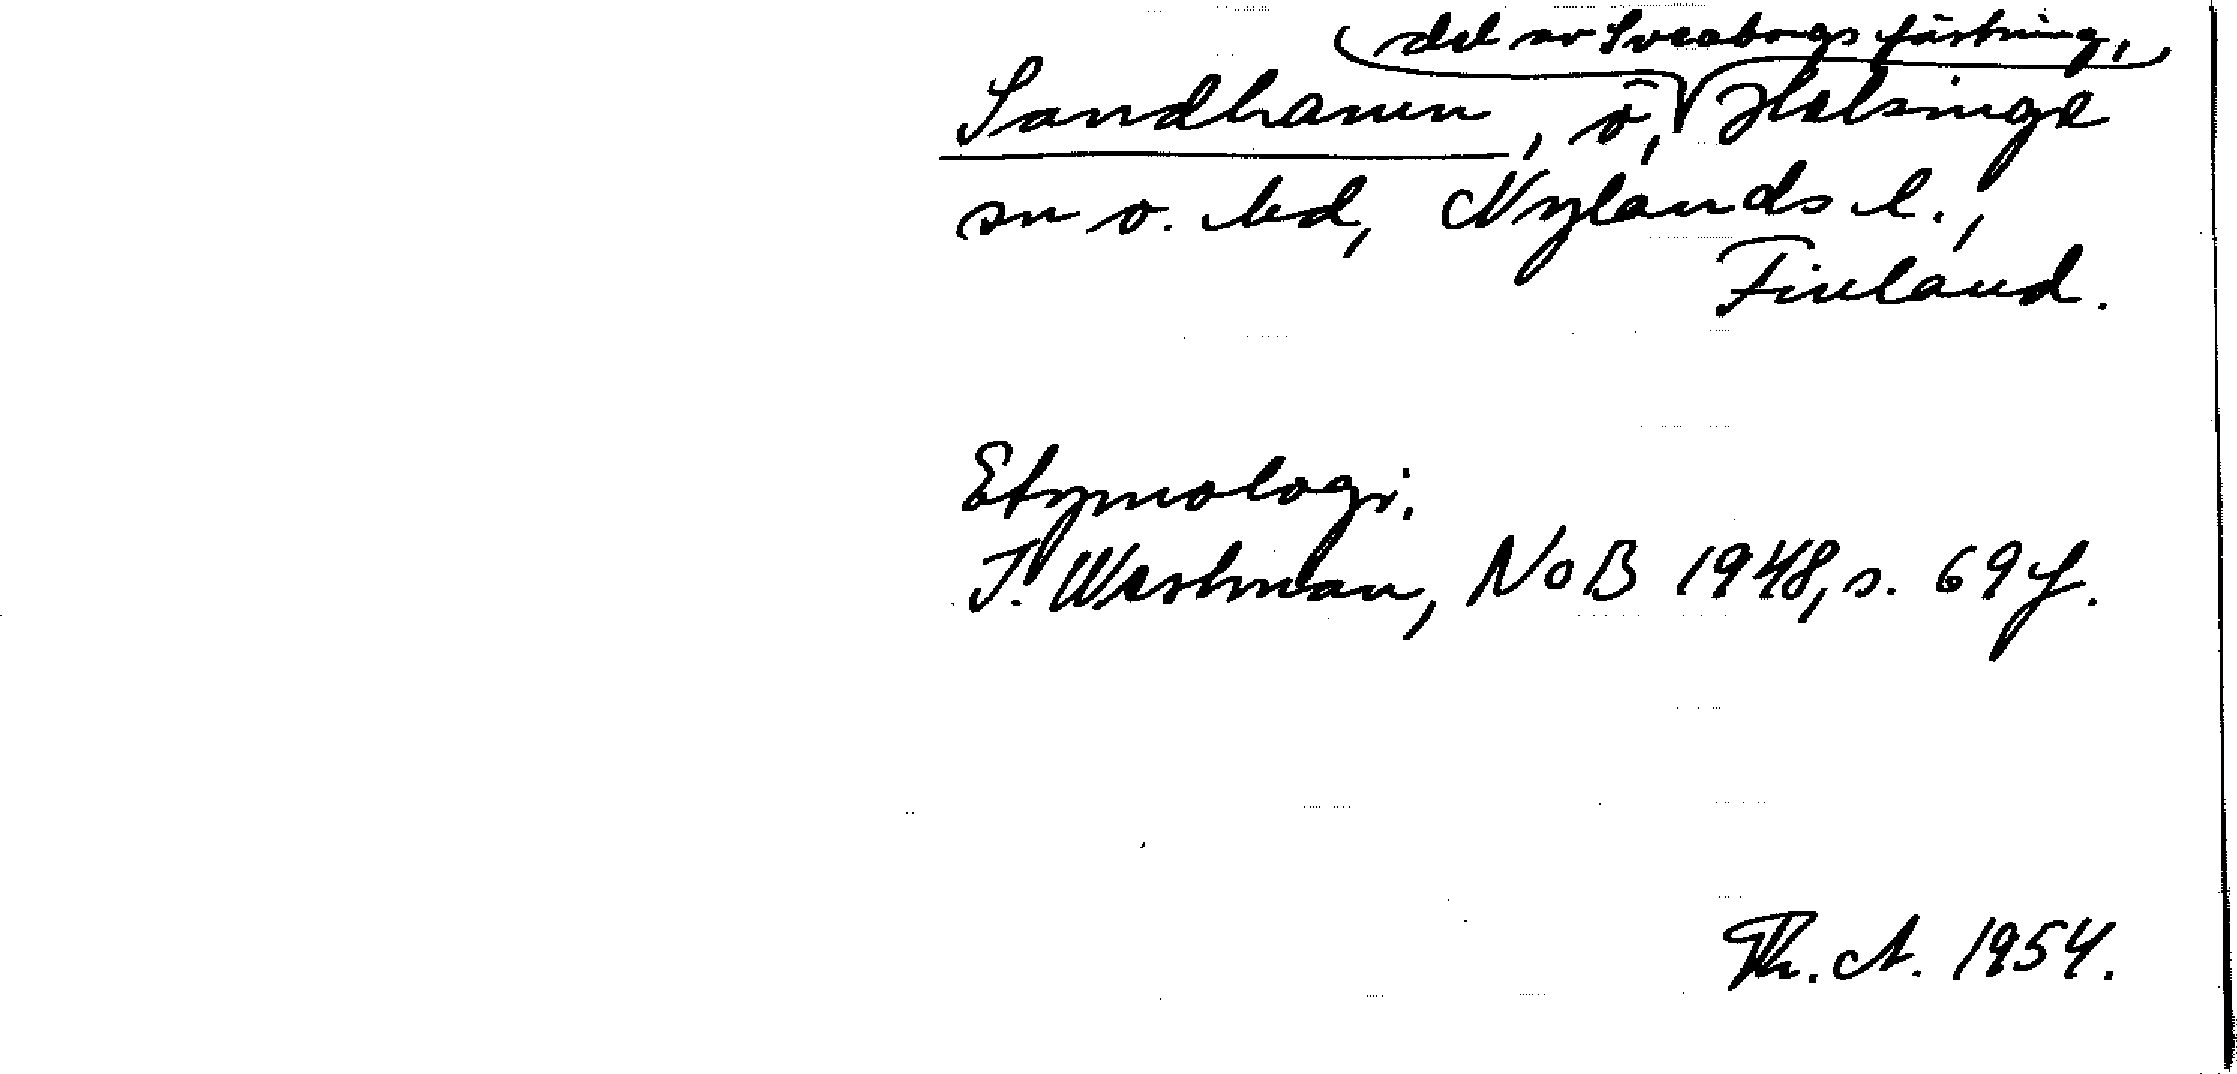 del av Sveaborgs fästning,
Sandhamn, ö, Helsinge
sn o. hd, Nylands l.,
Finland.
Etymologi.
I. Westman, NoB 1948, s. 69 f.
Th. A. 1954.